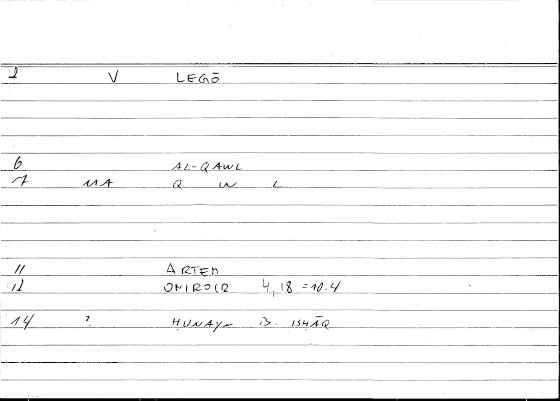 1 V LEGŌ
6 AL-QAWL
7 MA Q W L
11 ARTEM
12 ONIROCR 4,18 = 10.4
14 ? HUNAYN B. ISHĀQ